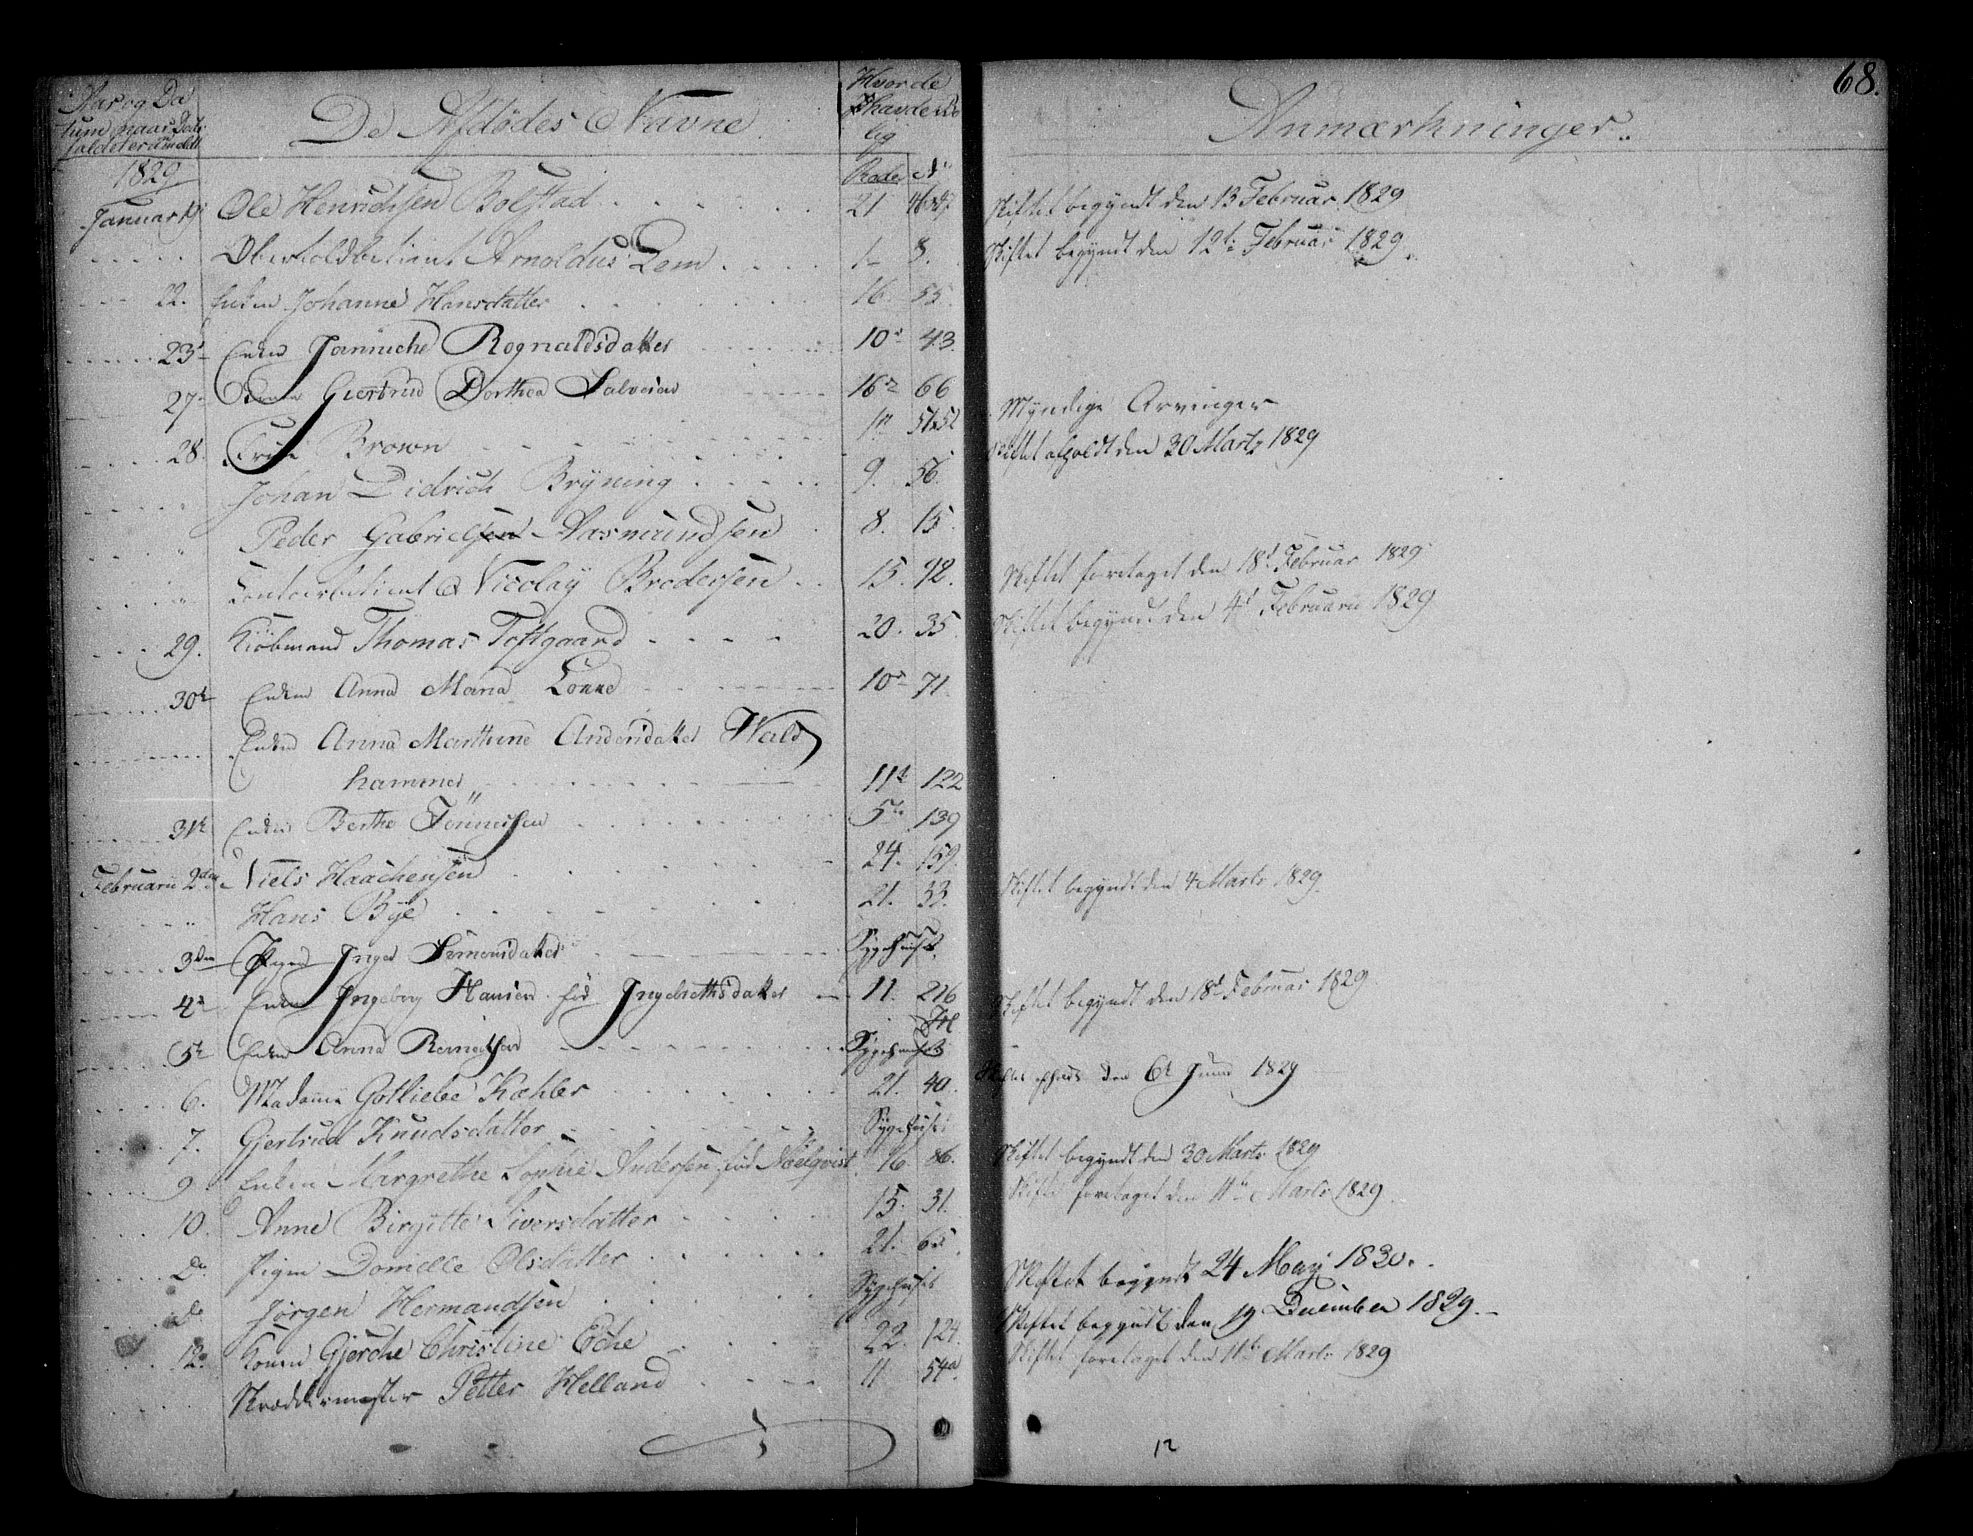 68.
Aar og Da
tum naar Døds
faldet er anmeldt
De Afdødes Navne
Hvor de
havde Bo
lig
Anmærkninger.
1829
Rode No
Januar 19. Ole Henrichsen Bolstad 21 Skiftet begyndt den 13 Februar 1829
Arnoldus Lem 1 8. Skiftet begyndt den 12te Februar 1829
22. Enken Johanne Hansdatter 16 55
23 Enken Jannicke Rognaldsdatter 10 43
27 Giertrud Dorthea 16 66 Myndige Arvinger
28. Brown 1 51 & 52 Skiftet afholdt den 30 Marts 1829
Johan Didrich Bryning 9. 56.
Peder Gabrielsen Aasmundsen 8. 15.
Nicolay Brodersen 15. 92. Skiftet foretaget den 18d Februar 1829
29. Kiøbmand Thomas Toftgaard 20. 35 Skiftet begyndt den 4d Februarii 1829
30t Enken Anna Maria Lonne 10 71
Enken Anna Marthine Andersdatter Wald
hammer 11t 122
31t Enken Berthe Tönnesen 5te 139
Februarii 2den Niels Haachensen 24. 159. Skiftet begyndt den 4 Marts 1829
Hans Bye 21. 33.
3den Pigen Inger Simonsdatter Sygehuset
4d Enken Ingeborg Hansen fød Ingebrethsdatter 11. 216 Skiftet begyndt den 18d Februar 1829
5te Enken Anna Sygehuset
6. Madamme Gotliebe Kæhler 21. 40. den 6t Juni 1829
7. Gjertrud Knudsdatter Sygehuset
9. Enken Margrethe Sophie Andersen fød 16 86. Skiftet begyndt den 30 Marts 1829
10. Anne Birgitte Siversdatter 15. 31. Skiftet foretaget den 11te Marts 1829
Do Pigen Danielle Olsdatter 21. 65
Do Jørgen Hermandsen Sygehuset Skiftet begyndt 24 May 1830.
12. Konen Gjerche Christine Eche 22. 124. Skiftet begyndt den 19 December 1829
Skræddermester Petter Helland 11 54a Skiftet foretaget den 11te Marts 1829
12